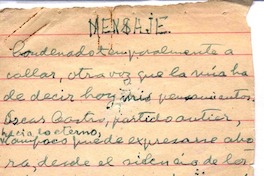 MENSAJE.
Condenado temporalmente a
callar, otra voz que la mía ha
de decir hoy mis pensamientos.
Oscar Castro, partido antier,
hacia lo eterno,
tampoco puede expresarse aho-
ra, desde el silencio de los